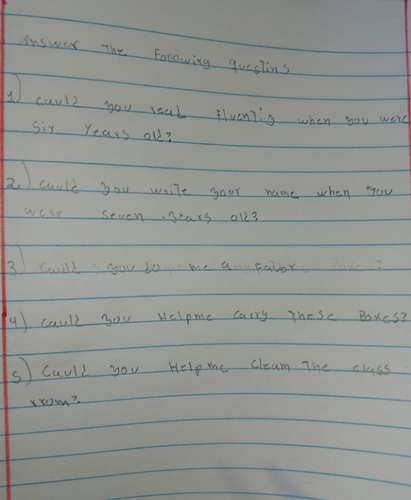 Answer The Following Questins
1) Could you read Fluently when you were
Six Years old?
2) Could you write your name when you
were seven years old?
3) Could you do me a Fabor
4) Could you Help me Carry These Boxes?
5) Could you Help me Clean The class
room?